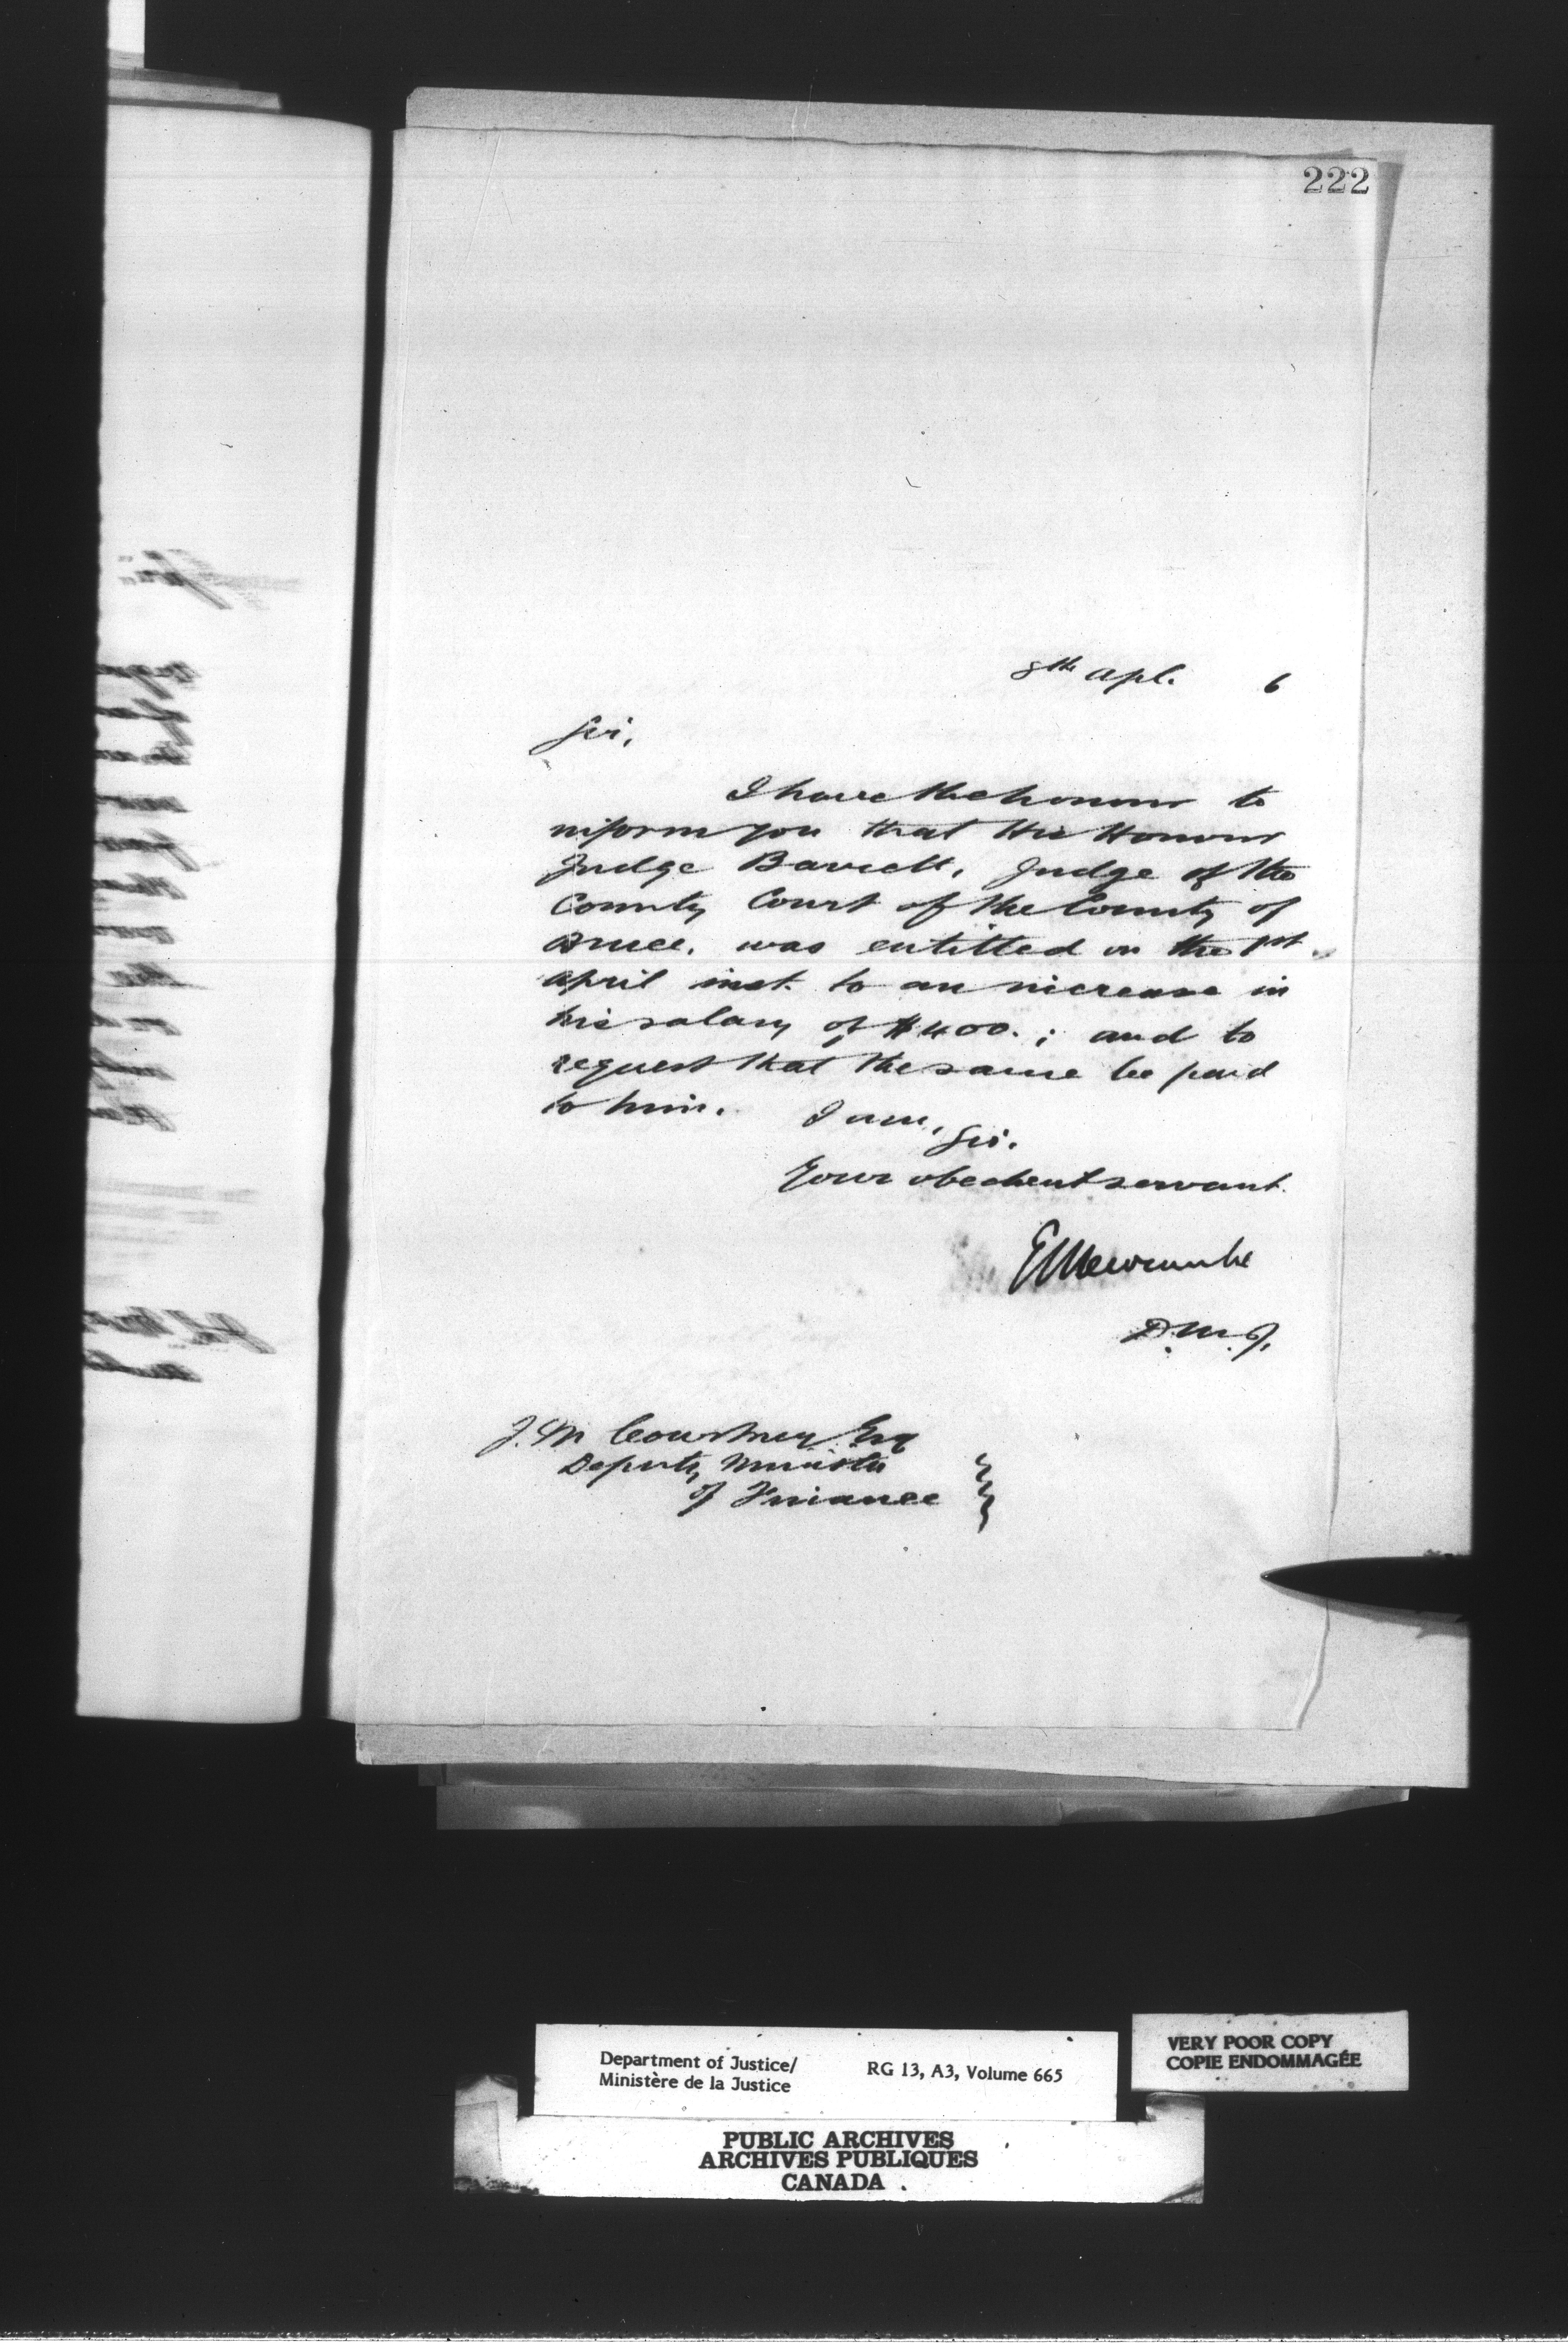 222
8th Apl. 6
Sir,
I have the honour to
inform you that His Honour
Judge Barrett, Judge of the
County Court of the County of
Bruce, was entitled on the 1st
April inst. to an increase in
his salary of $400.; and to
request that the same be paid
to him. I am,
Sir.
Your obedient servant.
E L Newcombe
D.M.J.
J. M Courtney Esq
Deputy Minister
of Finance
Department of Justice/
Ministère de la Justice
RG 13, A3, Volume 665
VERY POOR COPY
COPIE ENDOMMAGÉE
PUBLIC ARCHIVES
ARCHIVES PUBLIQUES
CANADA